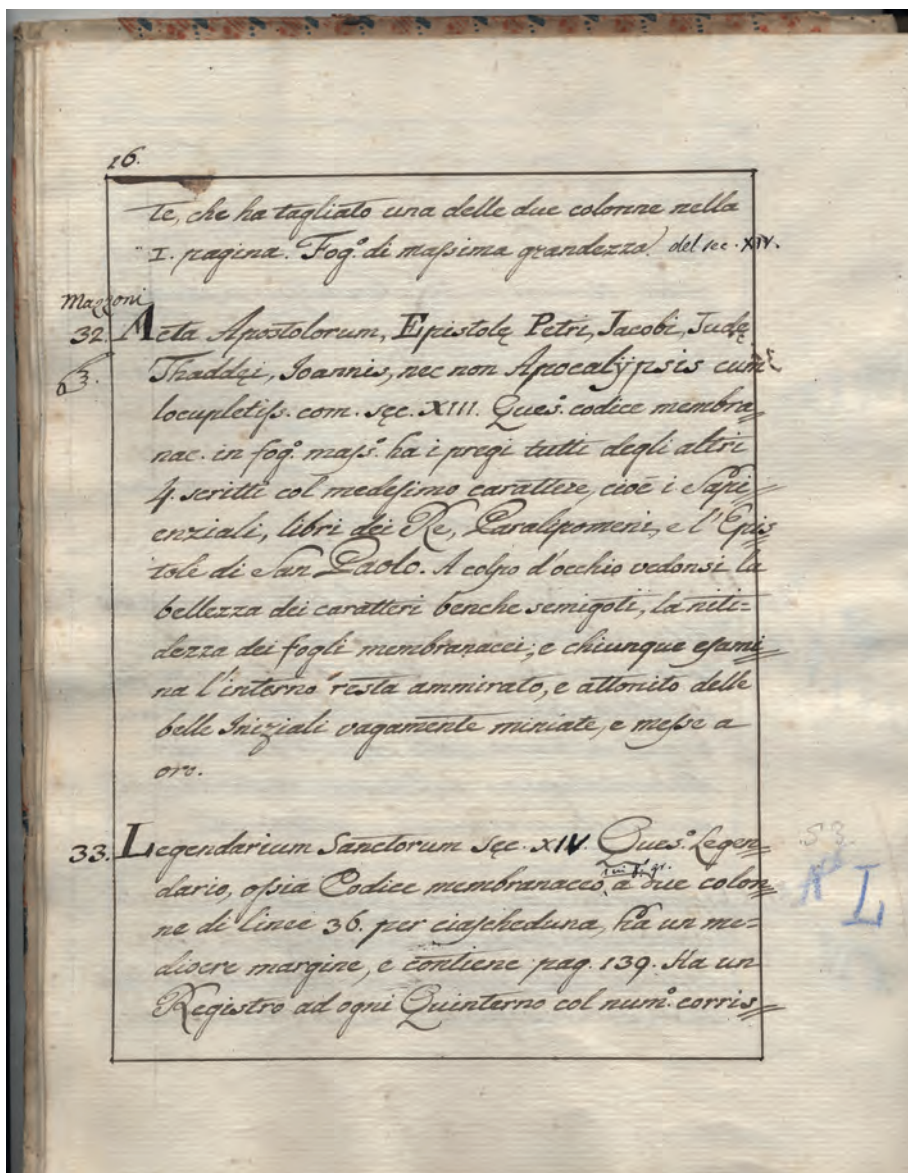 16.
te, che ha tagliato una delle due colonne nella
I. pagina. Fog.º di maſsima grandezza. del sec. XIV.
Mazzoni
32. Acta Apostolorum, Epistolę Petri, Jacobi, Judę
3. Thaddęi, Joannis, nec non Apocalÿpsis cum
locupletiſs. com. sęc. XIII. Ques.º codice membra=
nac. in fog.º maſs.º ha i pregi tutti degli altri
4. scritti col medeſimo carattere, cioè i Sapi=
enziali, libri dei Re, Paralipomeni, e l'Epis=
tole di San Paolo. A colpo d'occhio vedonsi la
bellezza dei caratteri benche semigoti, la niti=
dezza dei fogli membranacei; e chiunque eſami=
na l'interno resta ammirato, e attonito delle
belle Iniziali vagamente miniate, e meſse a
oro.
33. Legendarium Sanctorum sęc. XIV. Ques.º Legen=
dario, oſsia Codice membranaceo, a due colon=
ne di linee 36. per ciaſcheduna, ha un me=
diocre margine, e contiene pag. 139. Ha un
Registro ad ogni Quinterno col num.º corris=
53.
L